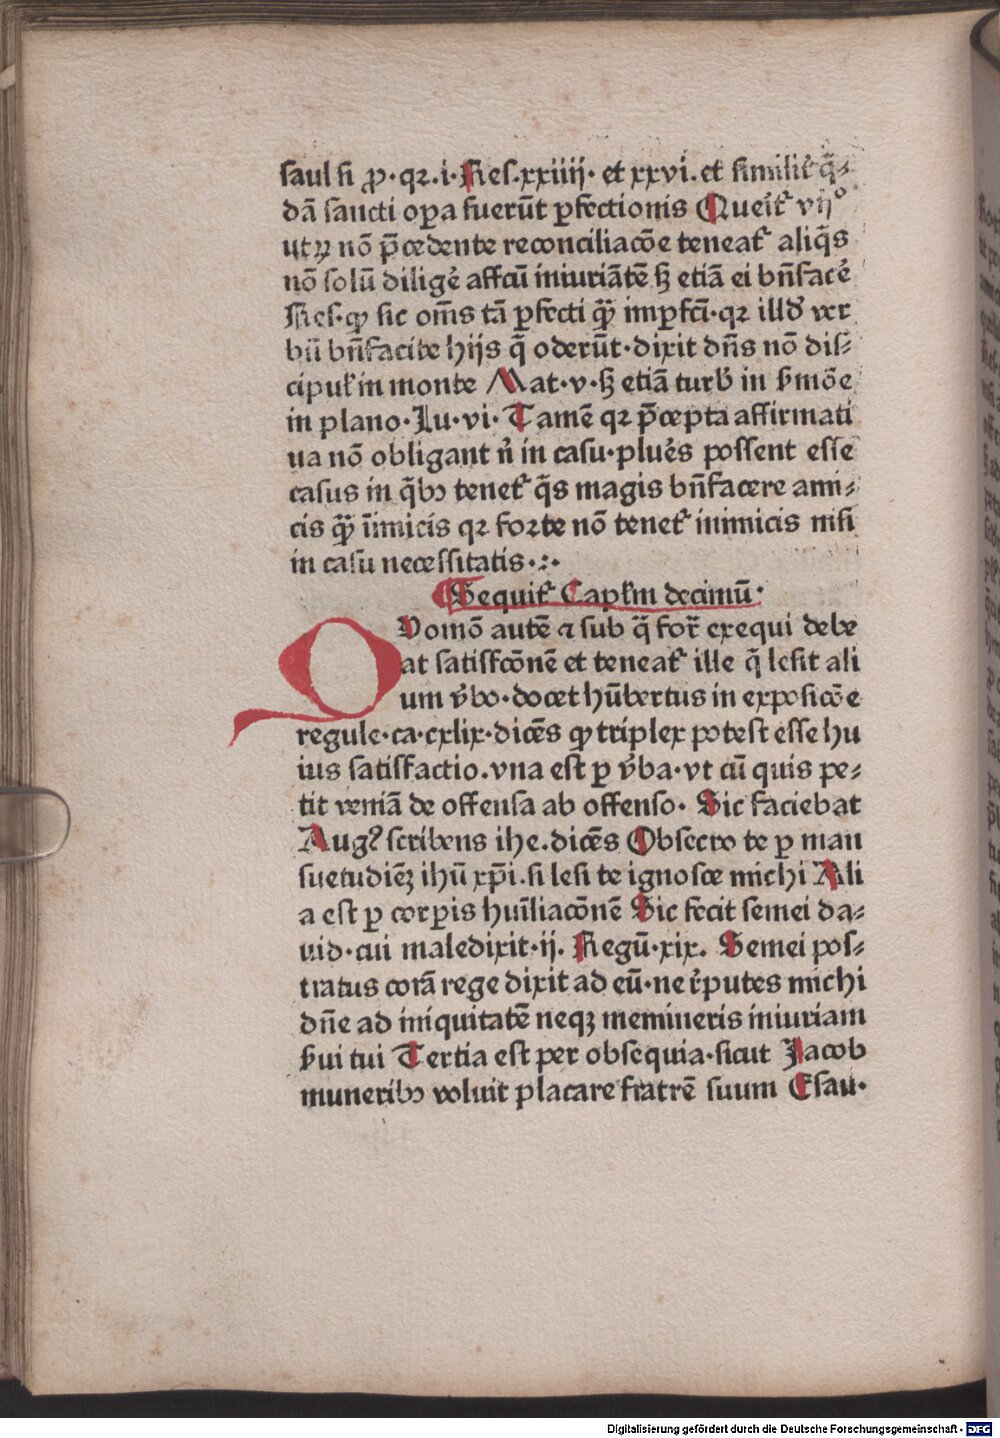 saul si ꝓ·qꝛ.i·Reſ.xxiiij·et xxvi.et ſimilit̉ q̄⸗
dā ſancti oꝑa fuerūt ꝑfectionis Querit᷑ vijº
utꝝ nō p̄cedente reconciliacōe teneat᷑ aliq̄s
nō ſolū diligē affcū iniuriātē ſꝫ etiā ei bn̄facē
Reſ·ꝙ ſic om̄s tā ꝑfecti ꝙ̄ imꝑfci·qꝛ illđ ver
bū bn̄facite hijs q̄ oderūt·dixit dn̄s nō diſ⸗
cipul̵ in monte Mat·v·ſꝫ etiā turb̵ in ẜmōe
in plano·Lu·vi·Tamē qꝛ p̄cepta affirmati
ua nō obligant n̄ in caſu·plur̄s poſſent eſſe
caſus in q̄bꝰ tenet᷑ q̄s magis bn̄facere ami⸗
cis ꝙ̄ īimicis qꝛ forte nō tenet᷑ inimicis niſi
in caſu neceſſitatis·:·
Sequit᷑ Capl̵m decimū·
Quomō autē ⁊ ſub q̄ for̄ exequi debe
at ſatiſfcōnē et teneat᷑ ille q̄ leſit ali
um v̄bo·docet hūbertus in expoſicōe
regule·ca·cxlix·dicēs ꝙ triplex poteſt eſſe hu
ius ſatiſfactio.vna eſt ꝑ v̄ba·vt cū quis pe⸗
tit veniā de offenſa ab offenſo·Sic faciebat
Augꝰ ſcribens ihe.dicēs Obſecro te ꝑ man
ſuetudiēꝫ ihū xp̄i.ſi leſi te ignoſce michi Ali
a eſt ꝑ corꝑis hūiliacōnē Sic fecit ſemei da⸗
uid·cui maledixit·ij.Regū·xix.Semei poſ⸗
tratus corā rege dixit ad eū·ne r̄putes michi
dn̄e ad iniquitatē neqꝫ memineris iniuriam
ẜui tui Tertia eſt per obſequia·ſicut Jacob
muneribꝰ voluit placare fratrē ſuum Eſau·
Digitalisierung gefördert durch die Deutsche Forschungsgemeinschaft · DFG